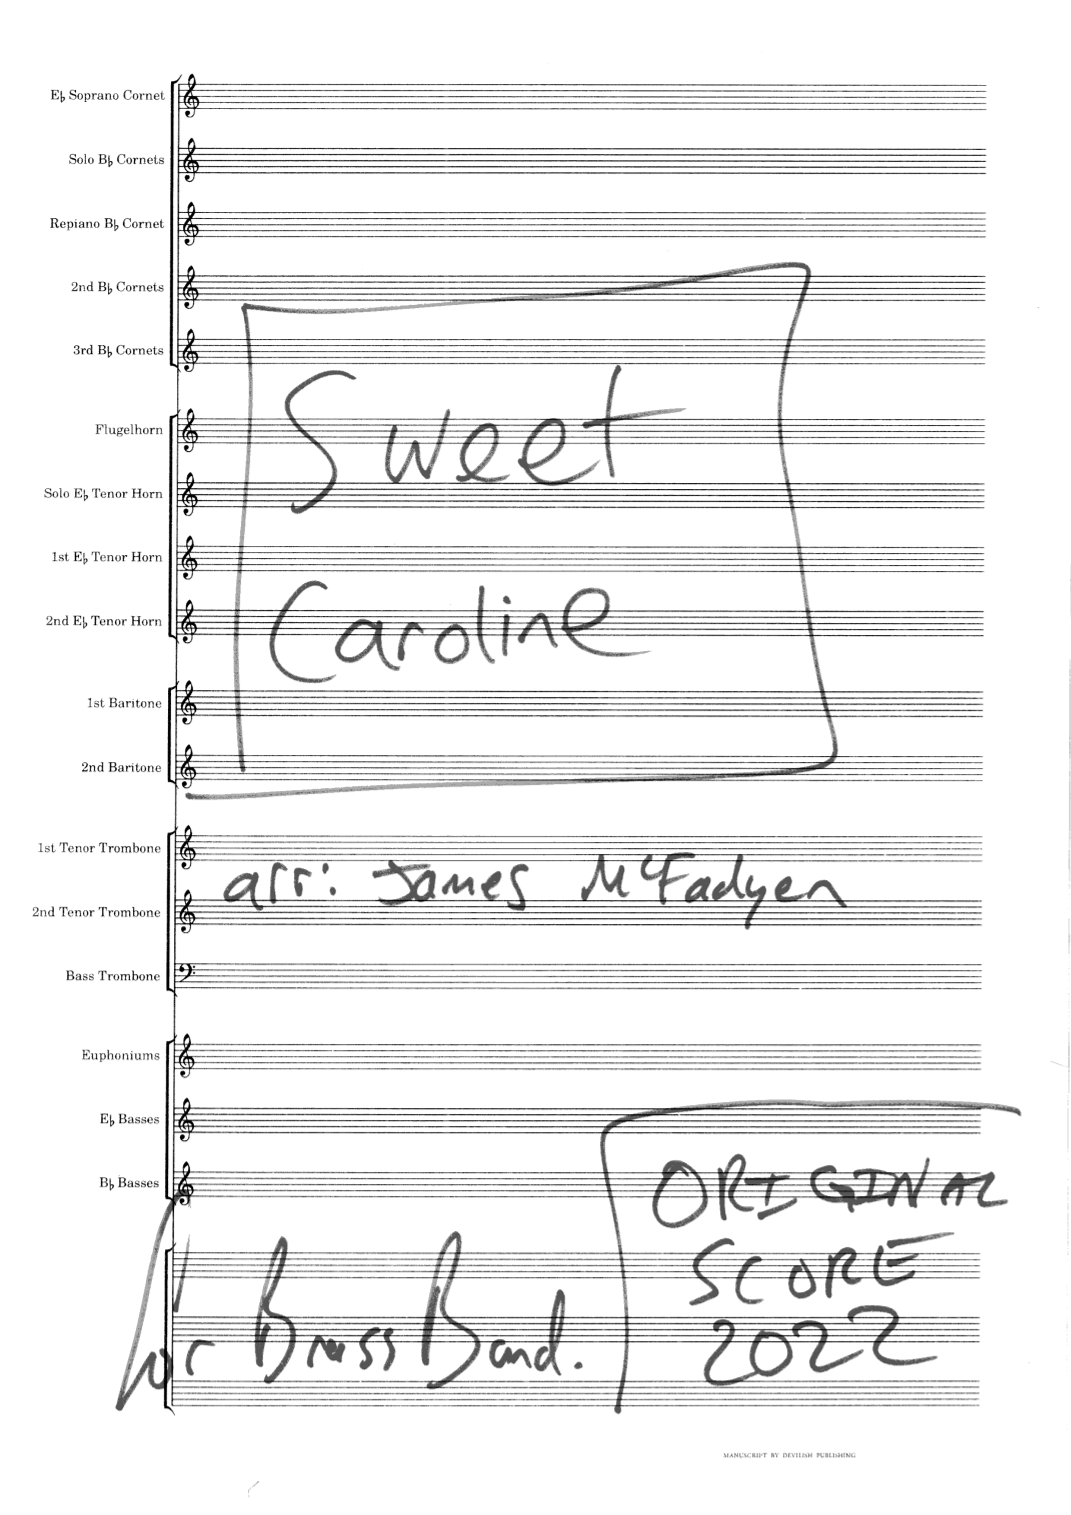 E♭ Soprano Cornet
Solo B♭ Cornets
Repiano B♭ Cornet
2nd B♭ Cornets
3rd B♭ Cornets
Flugelhorn
Sweet
Solo E♭ Tenor Horn
1st E♭ Tenor Horn
2nd E♭ Tenor Horn
Caroline
1st Baritone
2nd Baritone
1st Tenor Trombone
arr: James McFadyen
2nd Tenor Trombone
Bass Trombone
Euphoniums
E♭ Basses
B♭ Basses
ORIGINAL
SCORE
2022
for Brass Band.
MANUSCRIPT BY DEVILISH PUBLISHING